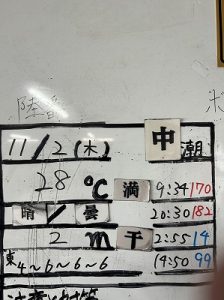 陸
ボ
11/2(木) 中潮
28 ℃ 満 9:34 170
晴/曇 20:30 182
2 m 干 2:55 14
東4~6~6~6 14:50 99